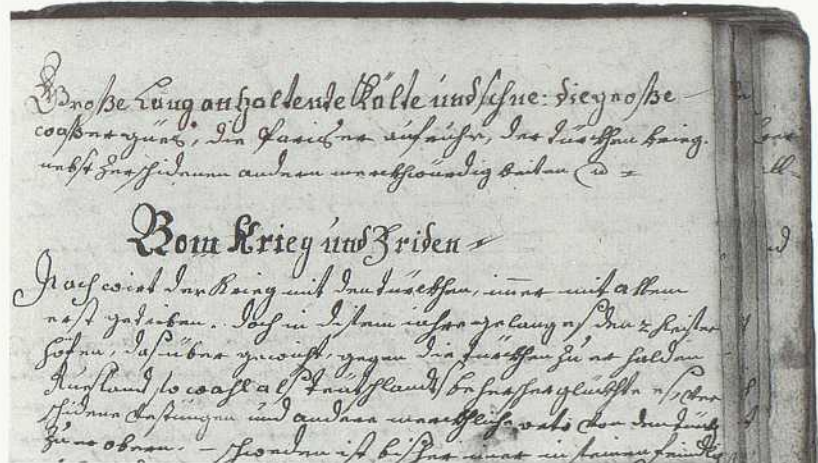 Große Lang anhaltente Költe und schne: die große
waßer güeß, die Pariser aufruhr, der türckhen krieg.
nebst zerschidenen andern merckhwürdig keiten
Vom Krieg und Friden
Noch wirt der Krieg mit den türckhen, imer mit allem
erst getriben. doch in disem iahr gelang es den 2 Keiser
höfen, das über gewicht, gegen die türckhen zu er halden
Rusland so wohl als Teütschlands beherscher glückhte es, ver
schidene vestungen und andere merckhliche orte von den türckh
zu er obern. – schweden ist bisher imer in seinen feindli